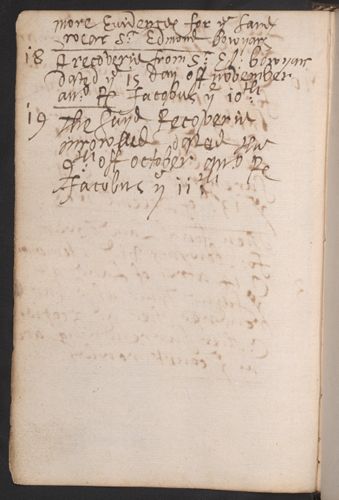 more Evidences for yͤ same
Sr. Edmond Bowyar
18 A recoverie from Sr. Ed: bowyar
dated yͤ 15 day off november
ano Re Jacobus yͤ 10th
19 The sayd Recoverie
dated the
9th off october ano Re
Jacobus yͤ 11th